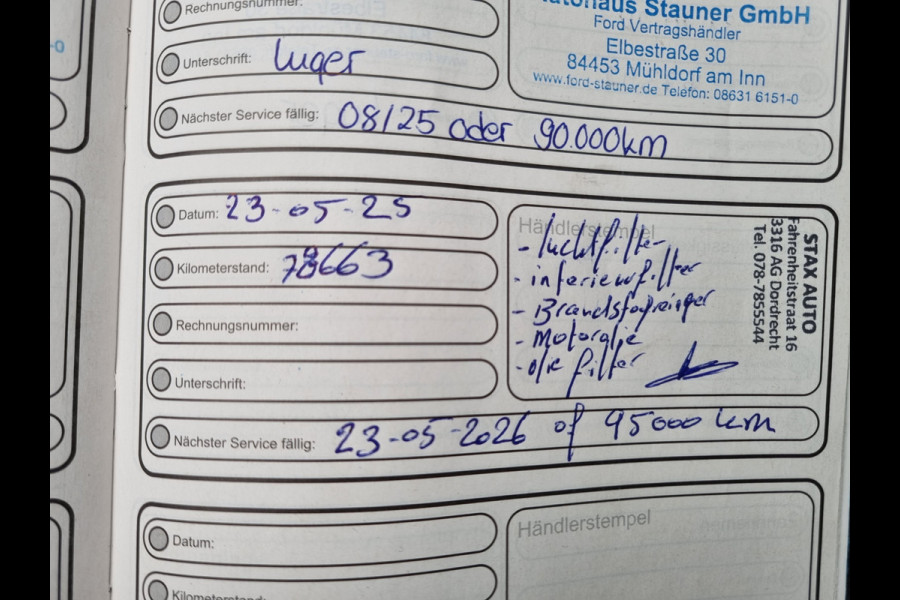 Rechnungsnummer:
Unterschrift: Luger
Nächster Service fällig: 08/25 oder 90.000km
Autohaus Stauner GmbH
Ford Vertragshändler
Elbestraße 30
84453 Mühldorf am Inn
www.ford-stauner.de Telefon: 08631 6151-0
Datum: 23-05-25
Kilometerstand: 78663
Rechnungsnummer:
Unterschrift:
Nächster Service fällig: 23-05-2026 of 95000 km
Händlerstempel
- luchtfilter
- interieurfilter
- Brandstofreiniger
- Motorolie
- olie filter
STAX AUTO
Fahrenheitstraat 16
3316 AG Dordrecht
Tel. 078-7855544
Datum:
Kilometerstand:
Händlerstempel